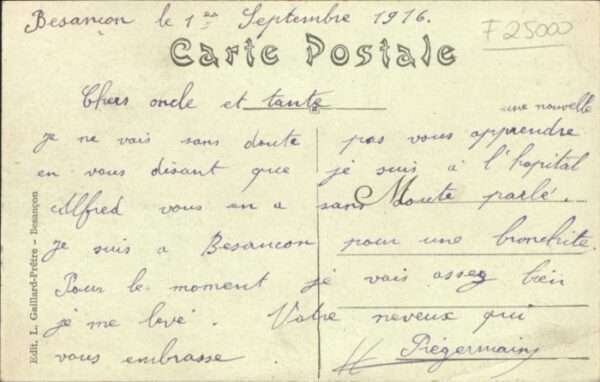 Besançon le 1er Septembre 1916.
F 25000
Carte Postale
Chers oncle et tante
une nouvelle
je ne vais sans doute pas vous apprendre
en vous disant que je suis à l'hopital
Alfred vous en a sans doute parlé.
M
je suis a Besancon pour une bronchite.
Pour le moment je vais assez bien
je me levé. Votre neveux qui
vous embrasse
Piégermain
Edit. L. Gaillard-Prêtre - Besançon